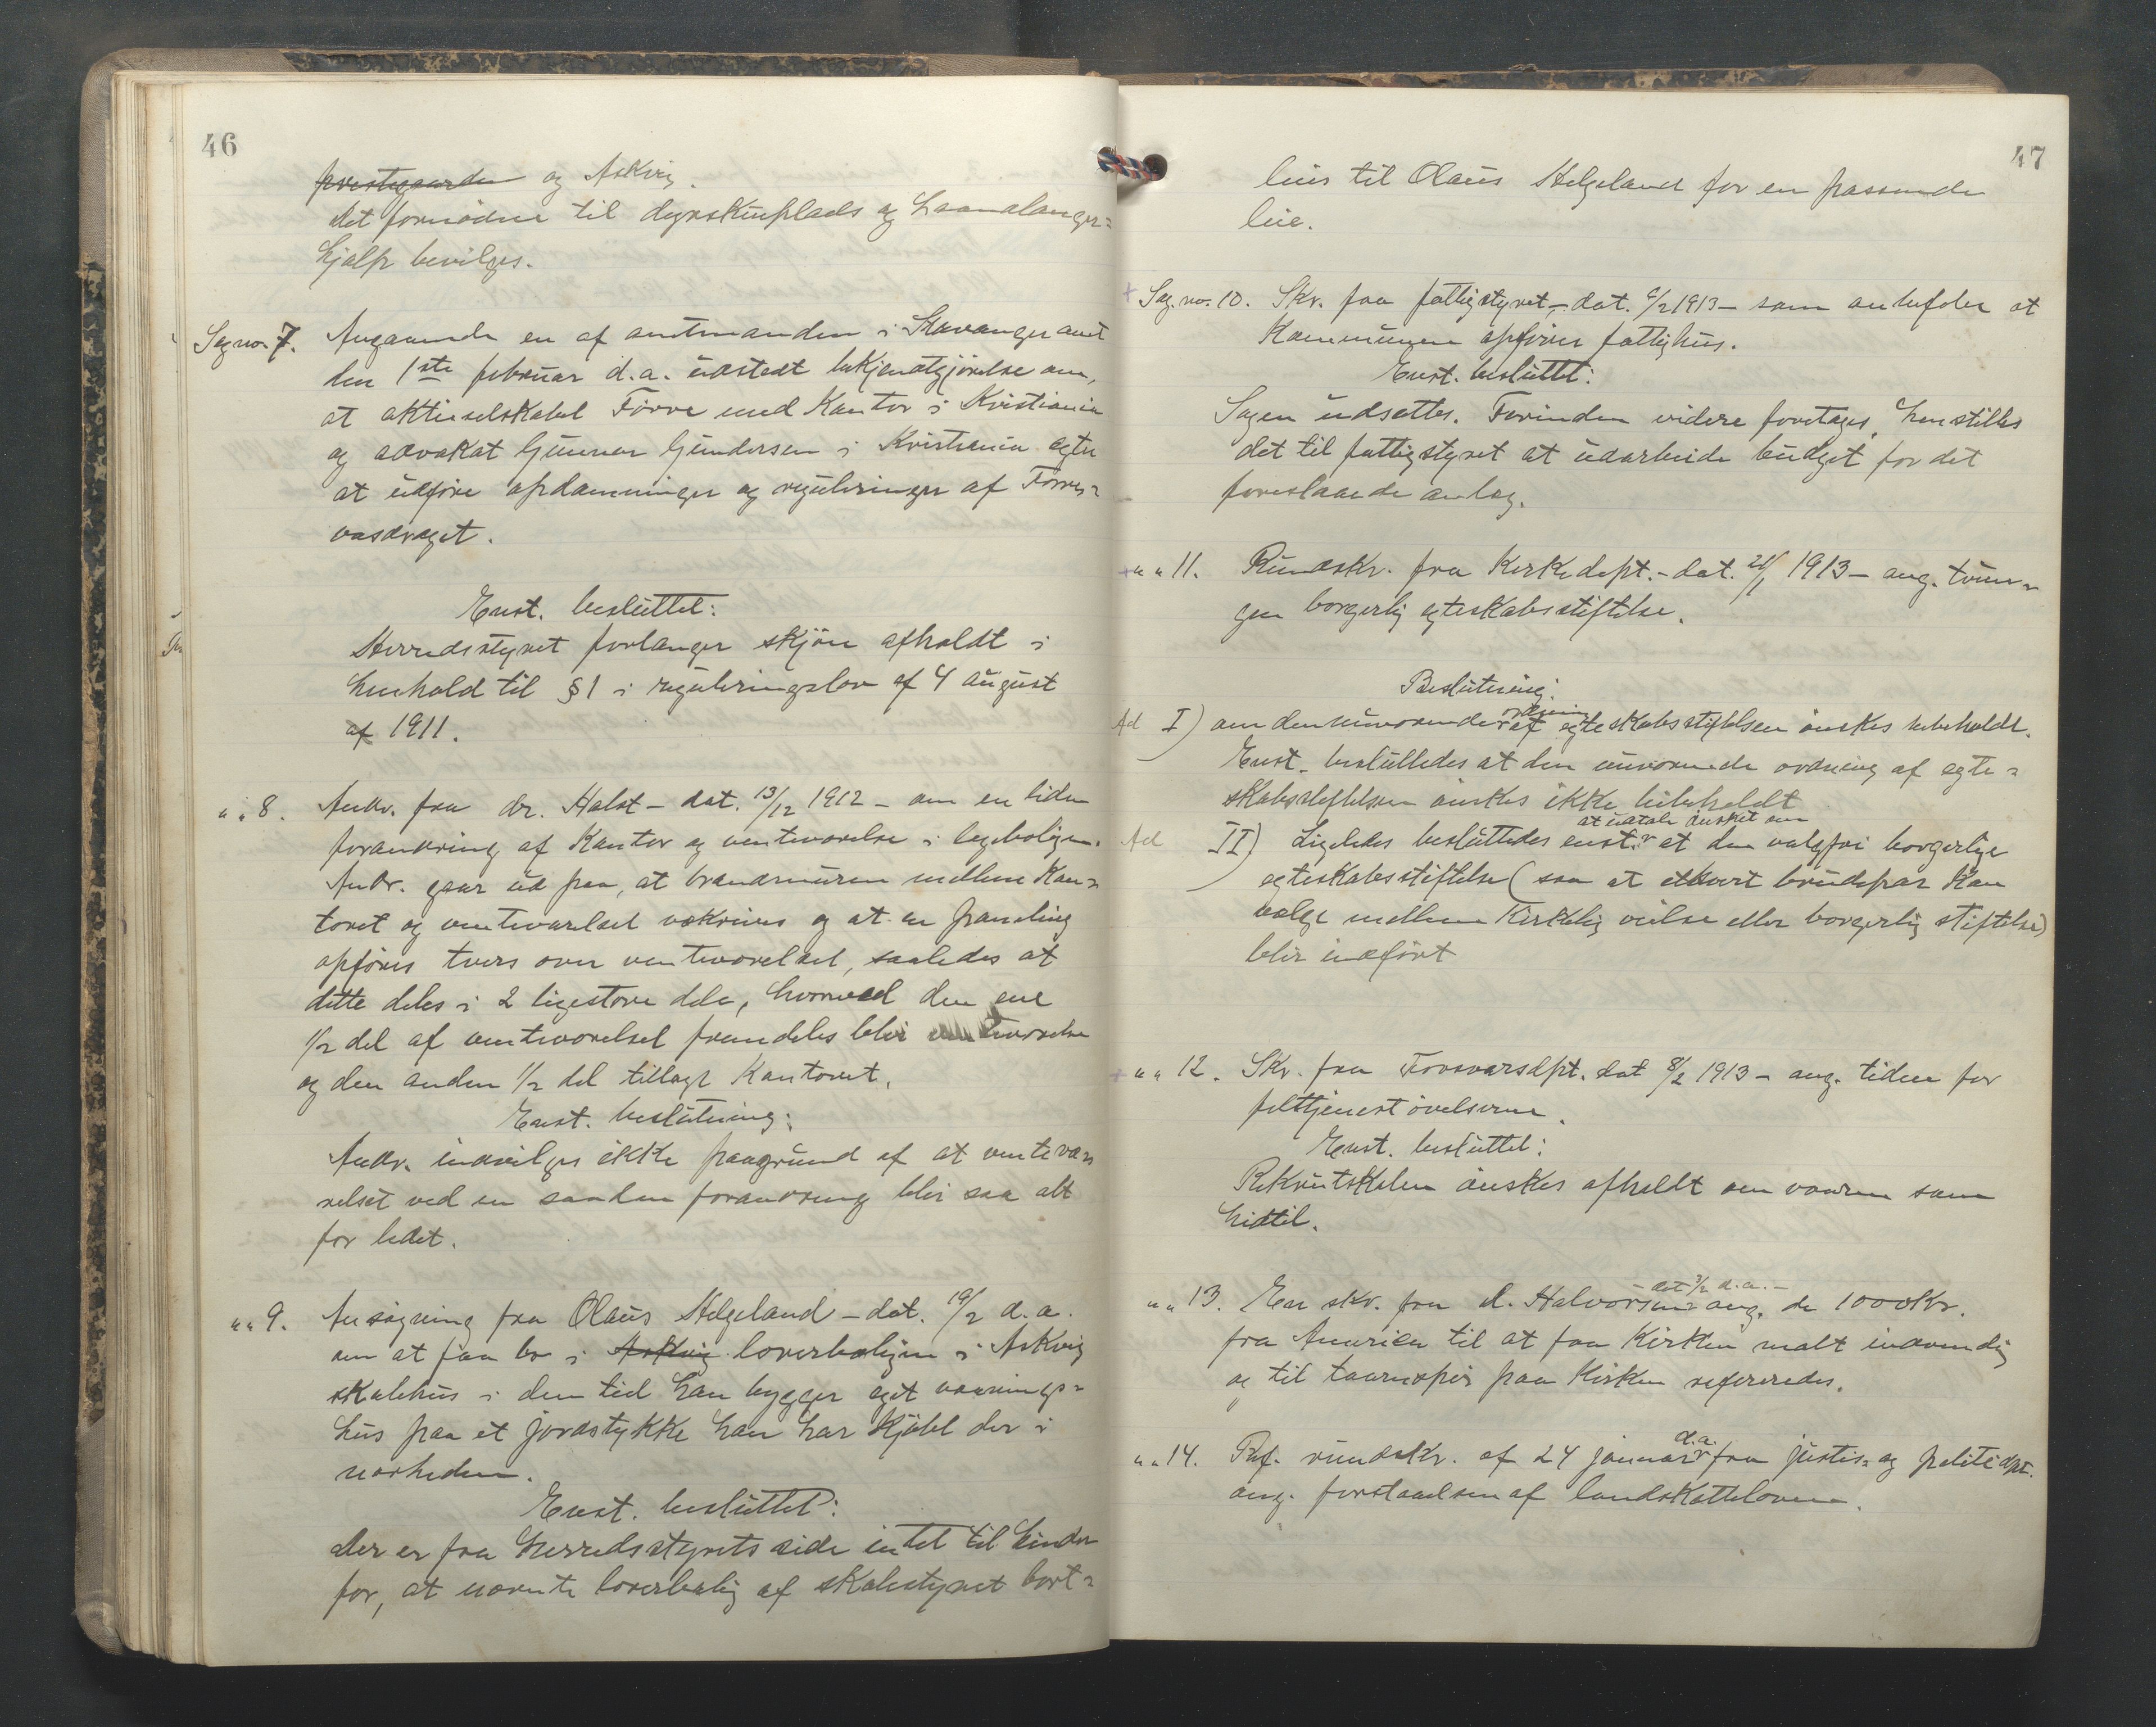 46
prestegaarden og Askvig.
det fornødne til dyrskueplads og haandlanger=
hjælp bevilges.
Sag no. 7. Angaaende en af amtmanden i Stavanger amt
den 1ste februar d.a. udstedt bekjendtgjørelse om,
at aktieselskabet Førre med kontor i Kristiania
og advokat Gunnar Gundersen i Kristiania agter
at udføre opdæmninger og reguleringer af Førres=
vasdraget.
Enst. besluttet:
Herredsstyret forlanger skjøn afholdt i
henhold til § 1 i reguleringslov af 4 august
af 1911.
" " 8. Andr. fra dr. Holst – dat. 13/12 1912 – om en liden
forandring af kontor og venteværelse i lægeboligen.
Andr. gaar ud paa, at brandmuren mellem kon=
toret og venteværelset vækrives og at en paneling
opføres tvers over venteværelset, saaledes at
dette deles i 2 ligestore dele, hvorved den ene
1/2 del af venteværelset fremdeles blir venteværelse
og den anden 1/2 del tillagt kontoret.
Enst. beslutning:
Andr. indvilges ikke paagrund af at venteva=
relset ved en saadan forandring blir saa alt
for lidet.
" " 9. Ansøgning fra Olaus Helgeland – dat. 19/2 d.a.
om at faa bo i Askvig lærerboligen i Askvig
skolehus i den tid han bygger eget vaanings=
hus paa et jordstykke han har kjøbt der i
nærheden.
Enst. besluttet:
Der er fra herredsstyrets side intet til hinder
for, at nævnte lærerbolig af skolestyret bort=
47
leies til Olaus Helgeland for en passende
leie.
+ Sag. no. 10. Skr. fra fattigstyret, – dat. 6/2 1913 – som anbefaler at
kommunen opfører fattighus.
Enst. besluttet:
Sagen udsættes. Forinden videre foretages, henstilles
det til fattigstyret at udarbeide budget for det
foreslaaede anlæg.
+ " " 11. Rundskr. fra Kirkedept. – dat. 21/1 1913 – ang. tvun=
gen borgerlig egteskabsstiftelse.
Beslutning:
Ad I) om den nuværende ordning af egteskabsstiftelsen ønskes bibeholdt.
Enst. besluttedes at den nuværende ordning af egte=
skabsstiftelsen ønskes ikke bibeholdt
at udtale ønsket om
Ad II) Ligeledes besluttedes enst. at den valgfri borgerlige
egteskabsstiftelse (saa at ethvert brudepar kan
vælge mellem kirkelig vielse eller borgerlig stiftelse)
blir indført
+ " " 12. Skr. fra Forsvarsdpt. dat 8/2 1913 – ang. tiden for
felttjenestøvelserne.
Enst. besluttet:
Rekrutskolen ønskes afholdt om vaaren som
hidtil.
– dat 3/2 d.a. –
" " 13. En skr. fra d. Halvorsen ang. de 1000 kr.
fra Amerika til at faa kirken malt indvendig
og til taarnspir paa kirken refereredes.
d.a.
" " 14. Ref. rundskr. af 24 januar fra justis= og politidpt.
ang. forstaaelsen af landskatteloven.